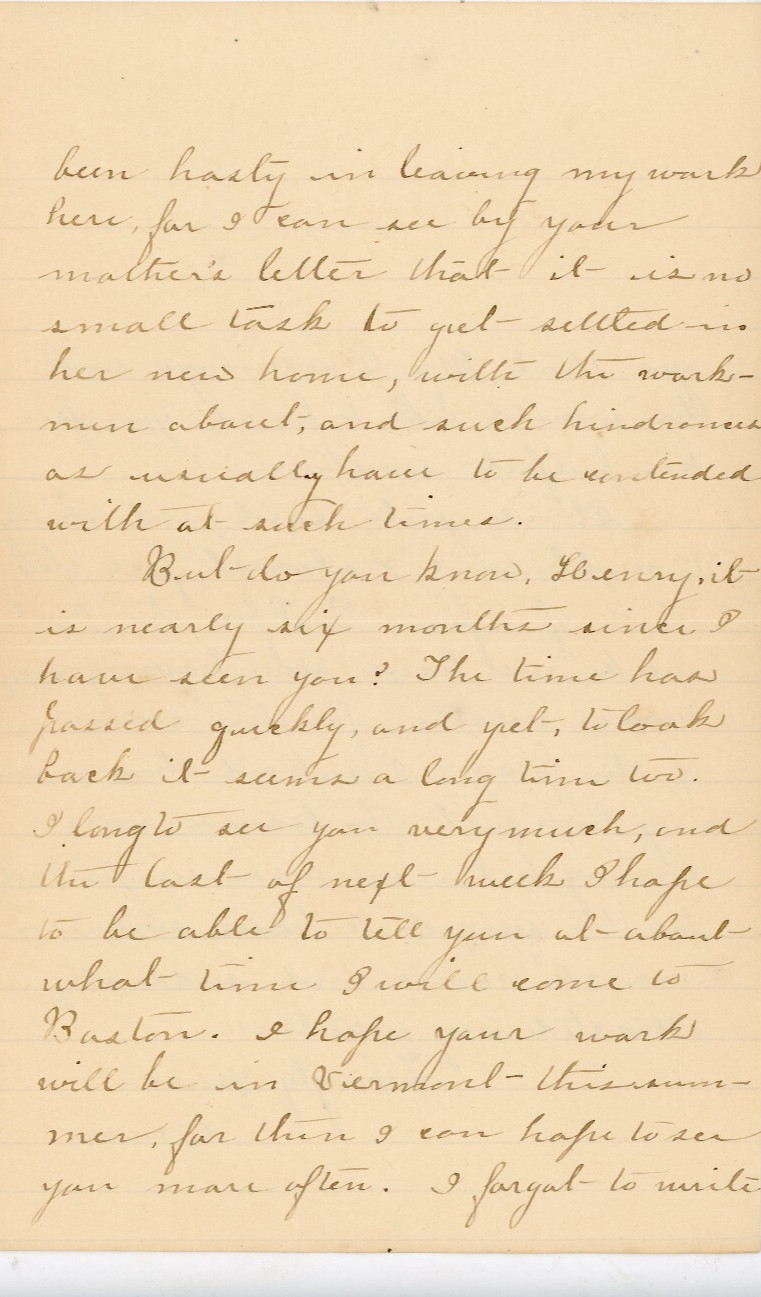 been hasty in leaving my work
here, for I can see by your
mother's letter that it is no
small task to get settled in
her new home, with the work-
men about, and such hindrances
as usually have to be contended
with at such times.
But do you know, Henry, it
is nearly six months since I
have seen you? The time has
passed quickly, and yet, to look
back it seems a long time too.
I long to see you very much, and
the last of next week I hope
to be able to tell you at about
what time I will come to
Boston. I hope your work
will be in Vermont this sum-
mer, for then I can hope to see
you more often. I forgot to write